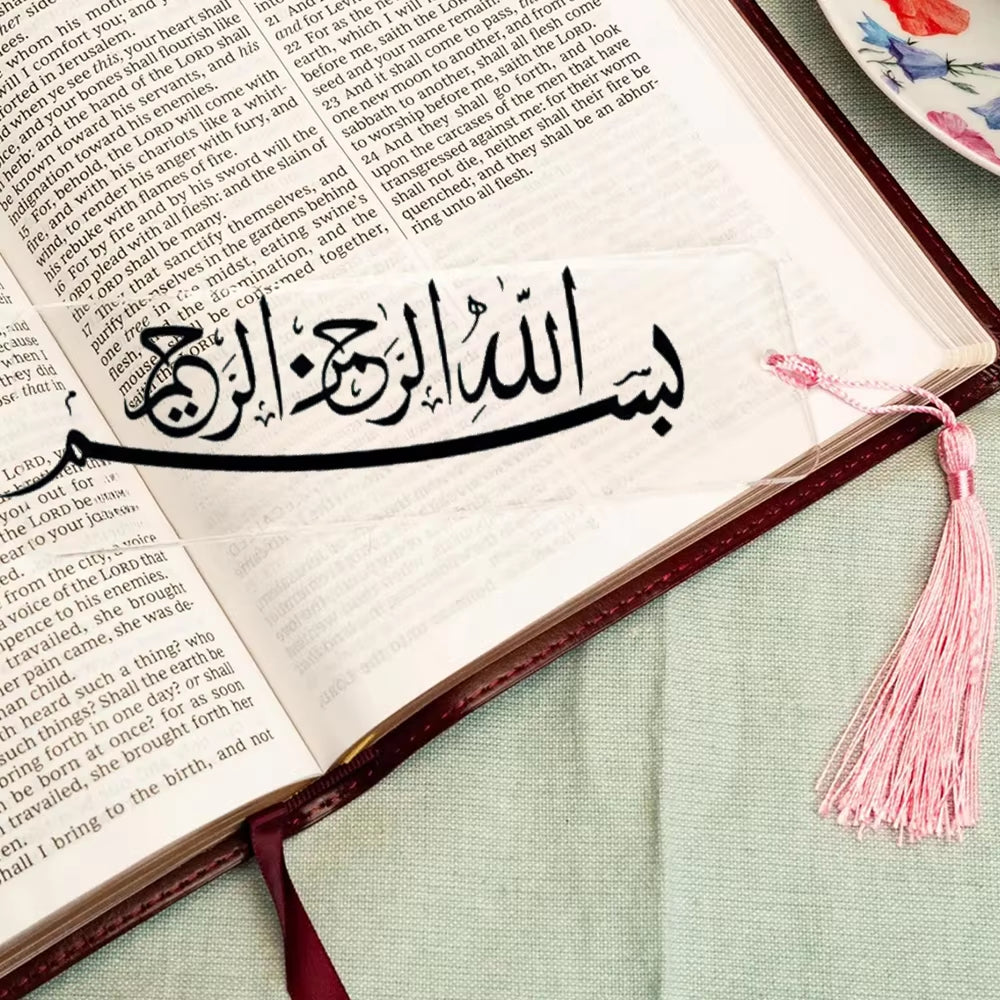 whom his moth
will I comfort you; and
forted in Jerusalem.
when ye see this, your heart shall
and your bones shall flourish like
herb, and the hand of the LORD shall
known toward his servants, and his
indignation toward his enemies.
15 For, behold, the LORD will come with
fire, and with his chariots like a whirl-
wind, to render his anger with fury, and
his rebuke with flames of fire.
16 For by fire and by his sword will the
LORD plead with all flesh: and the slain of
the LORD shall be many.
17 They that sanctify themselves, and
purify themselves in the gardens behind
one tree in the midst, eating swine's
flesh, and the abomination, and the
mouse, shall be consumed together,
saith the LORD.
21 And I
and for Levi
22 For as the ne
earth, which I will
before me, saith the LO
seed and your name remain.
23 And it shall come to pass, that
one new moon to another, and from one
sabbath to another, shall all flesh come
to worship before me, saith the LORD.
24 And they shall go forth, and look
upon the carcases of the men that have
transgressed against me: for their worm
shall not die, neither shall their fire be
quenched; and they shall be an abhor-
ring unto all flesh.
بسم الله الرحمن الرحيم
and
because
when I
they did
ose that in
LORD,
you out for
the LORD be
ear to your
ed.
from the city, a voice
voice of the LORD that
pence to his enemies.
travailed, she brought
her pain came, she was de-
an child.
heard such a thing? who
such things? Shall the earth be
bring forth in one day? or shall
be born at once? for as soon
travailed, she brought forth her
en.
hall I bring to the birth, and not